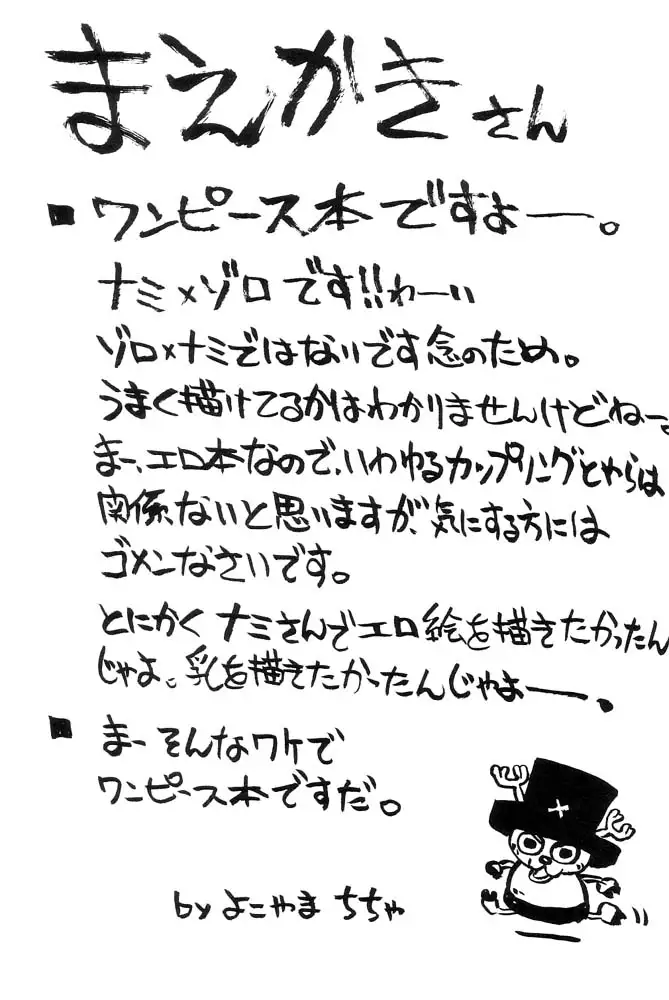 まえがきさん
■ワンピース本ですよー。
ナミ×ゾロです!!わーい
ゾロ×ナミではないです念のため。
うまく描けてるかはわかりませんけどねー。
まー、エロ本なので、いわゆるカップリングとやらは
関係ないと思いますが、気にする方には
ゴメンなさいです。
とにかくナミさんでエロ絵を描きたかったん
じゃよ。乳を描きたかったんじゃよー。
■まーそんなワケで
ワンピース本ですだ。
by よこやまちちゃ